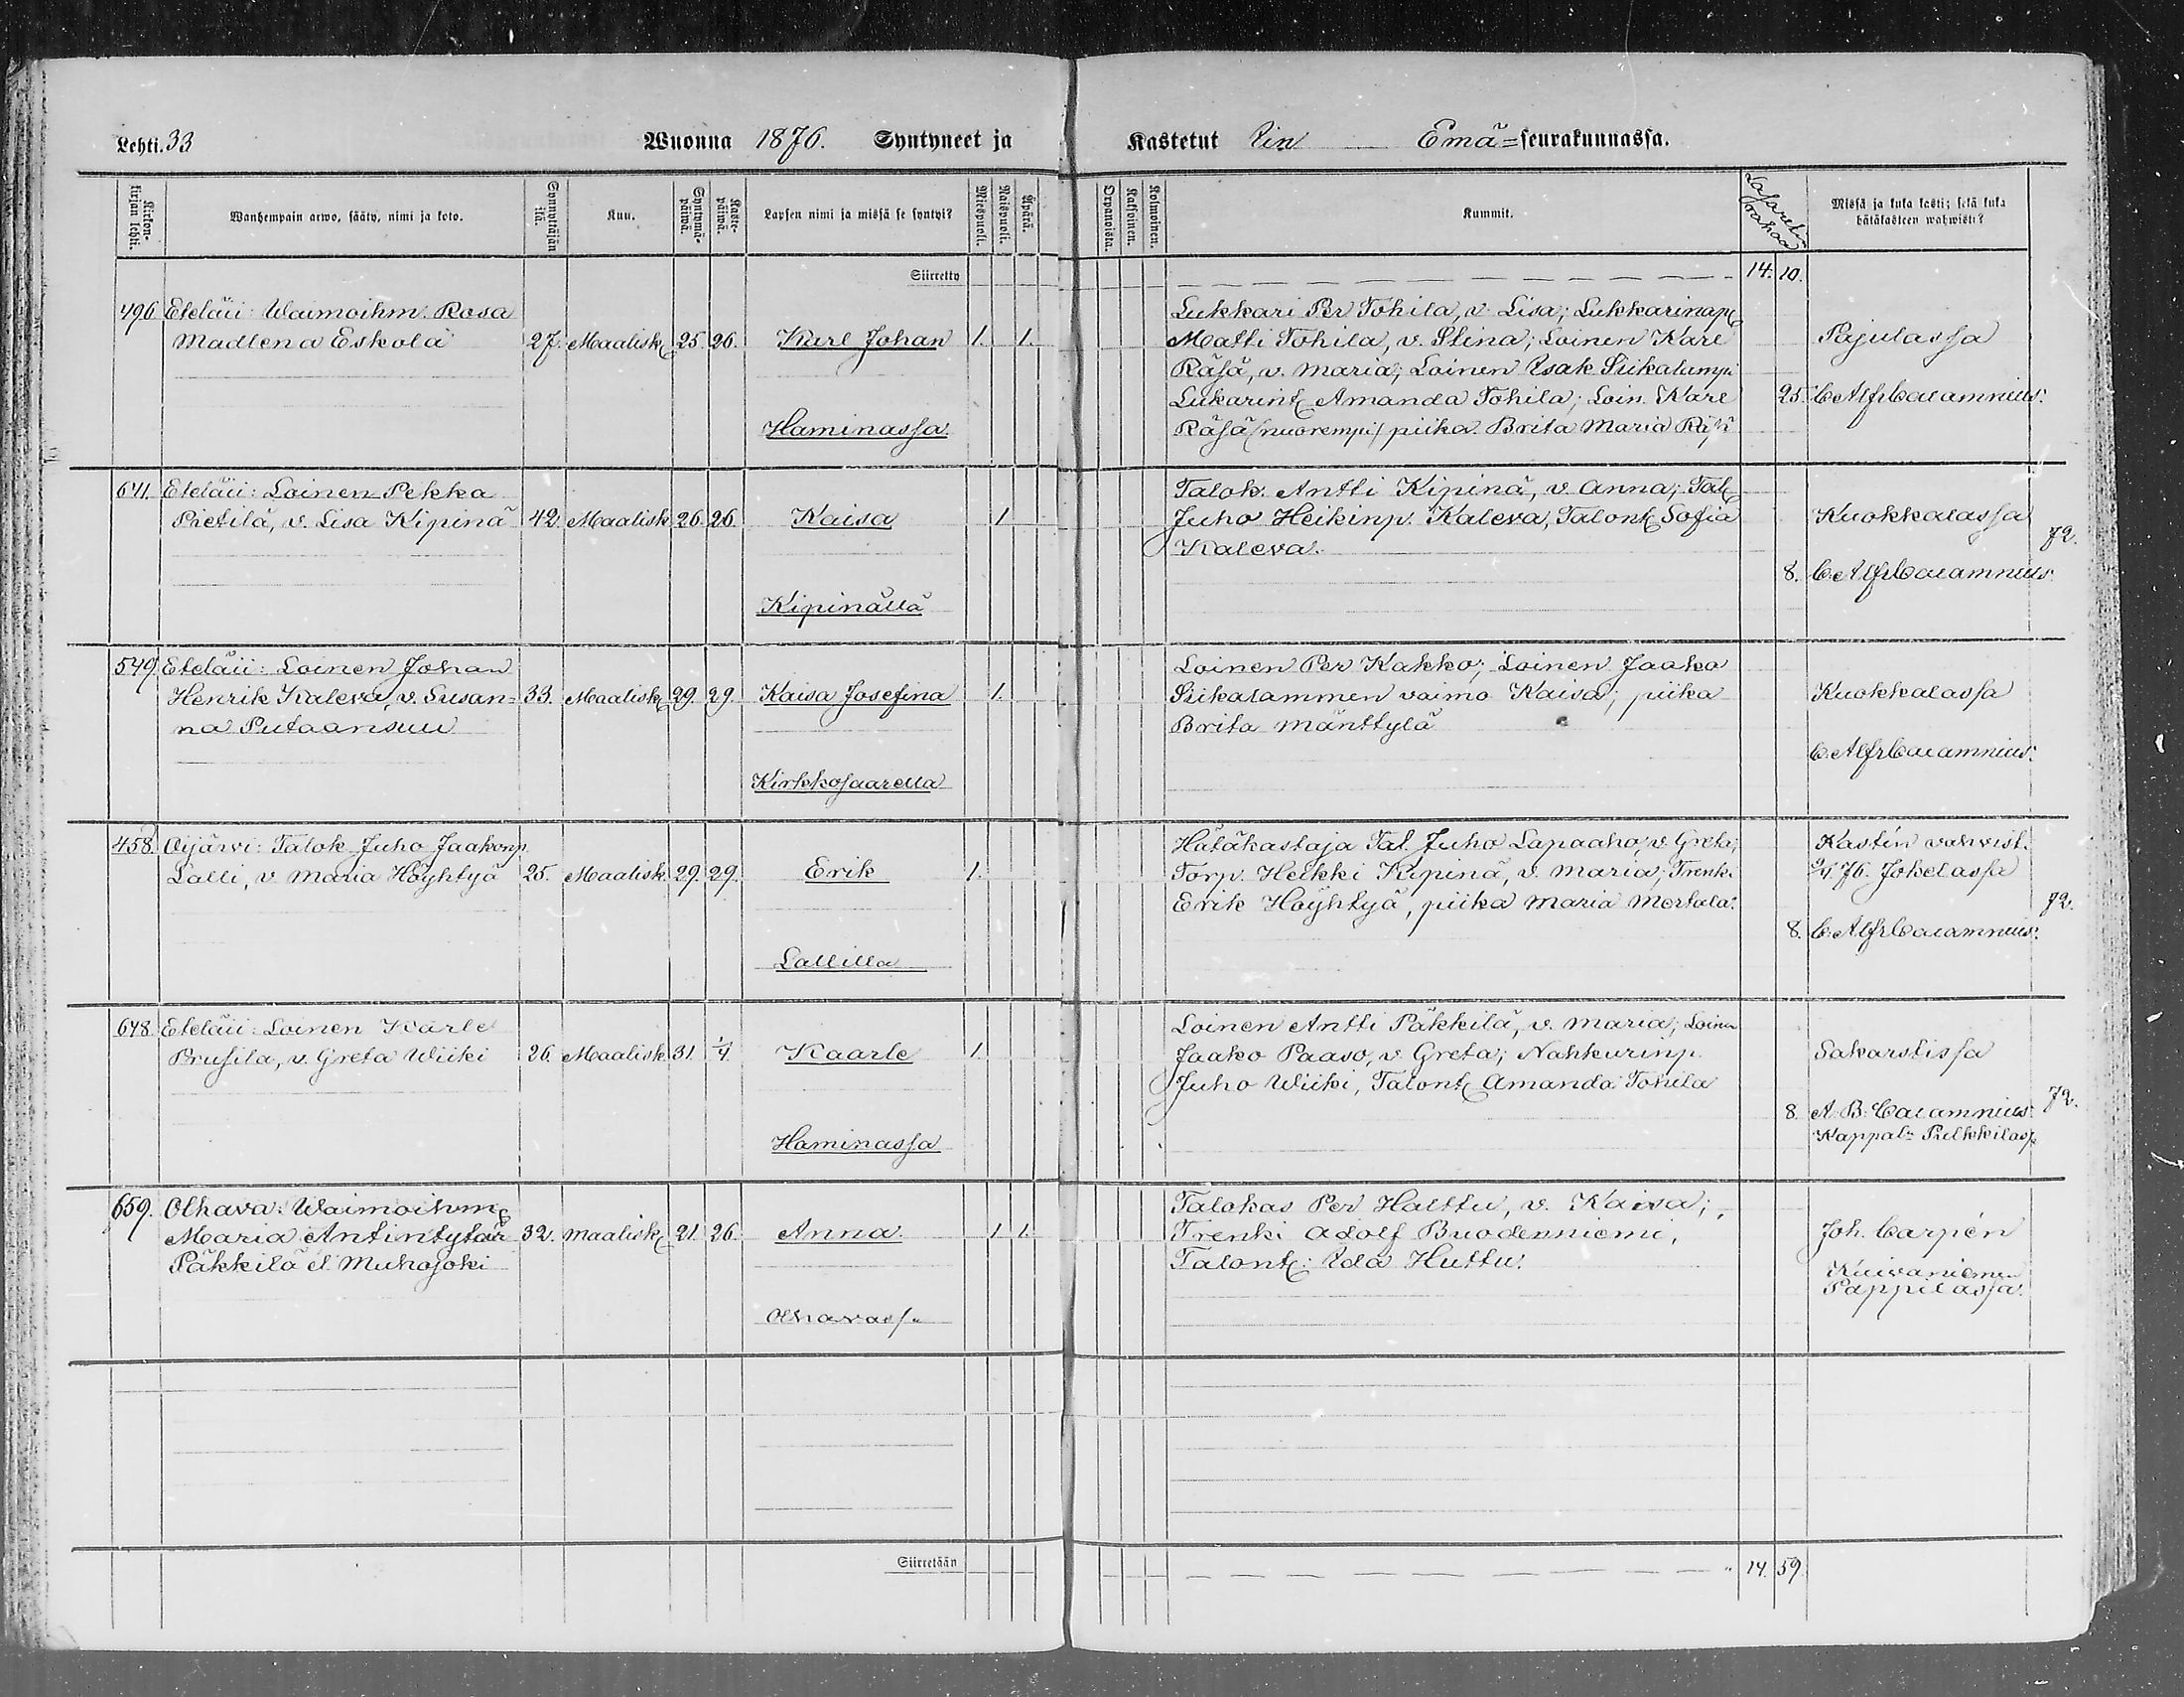 Lehti. 33 Wuonna 1876. Syntyneet ja Kastetut Iin Emä=seurakunnassa.
Kirkon-kirjan lehti. Wanhempain arwo, sääty, nimi ja koto. Synnyttäjän ikä. Kuu. Syntymä-päiwä. Kaste-päiwä. Lapsen nimi ja missä se syntyi? Miespuoli. Naispuoli. Äpärä. Orpanoista. Kaksoinen. Kolmoinen. Kummit. Lasaretin rahaa Missä ja kuka kasti; sekä kuka hätäkasteen wahwisti?
Siirretty 14. 10.
496 Eteläii: Waimoihm. Rosa
Madlena Eskola 27. Maalisk. 25. 26. Karl Johan 1. 1.
Haminassa
Lukkari Per Tohila, v. Lisa; Lukkarinp.
Matti Tohila, v. Stina; Loinen Karl
Räsä, v. Maria; Loinen Isak Siikalampi
Lukarint. Amanda Tohila; Loin. Karl
Räsä (nuorempi) piika Brita Maria Räsä
Pajulassa
25. C. Alfr Calamnius.
641. Eteläii: Loinen Pekka
Pietilä, v. Lisa Kipinä 42. Maalisk. 26. 26. Kaisa 1
Kipinällä
Talok. Antti Kipinä, v. Anna; Tal.
Juho Heikinp. Kaleva, Talont. Sofia
Kaleva.
Kuokkalassa
72.
8. C. Alfr Calamnius.
549. Eteläii: Loinen Johan
Henrik Kaleva, v. Susan=
na Putaansuu 33. Maalisk. 29. 29. Kaisa Josefina 1.
Kirkkosaarella
Loinen Per Kakko; Loinen Jaako
Siikalammen vaimo Kaisa; piika
Brita Mänttylä
Kuokkalassa
C. Alfr Calamnius.
458. Oijärvi: Talok. Juho Jaakonp.
Lalli, v Maria Höyhtyä 25. Maalisk. 29. 29. Erik 1.
Lallilla
Hätäkastaja Tal. Juho Lapaaho, v. Greta;
Torp. Heikki Kipinä, v. Maria; Trenk.
Erik Höyhtyä, piika Maria Mertala.
Kastén vahvist.
2/4 76. Jokelassa
72.
8. C. Alfr Calamnius.
648. Eteläii: Loinen Karle
Prusila, v. Greta Wiiki 26. Maalisk. 31. 1/4 Kaarle 1.
Haminassa
Loinen Antti Päkkilä, v. Maria; Loinen
Jaako Paaso, v. Greta; Nahkurinp.
Juho Wiiki, Talont. Amanda Tohila
Sakarstissa
72.
8 A. B. Calamnius
Kappal: Pulkkilass.
659. Olhava: Waimoihm.
Maria Antintytär 32. Maalisk. 21. 26. Anna 1 1.
Päkkilä el. Muhojoki
Olhavassa
Talokas Per Halttu, v. Kaisa;
Trenki Adolf Buodenniemi,
Talont. Ida Huttu.
Joh. Carpén
Kuivaniemen
Pappilassa.
Siirretään 14. 59